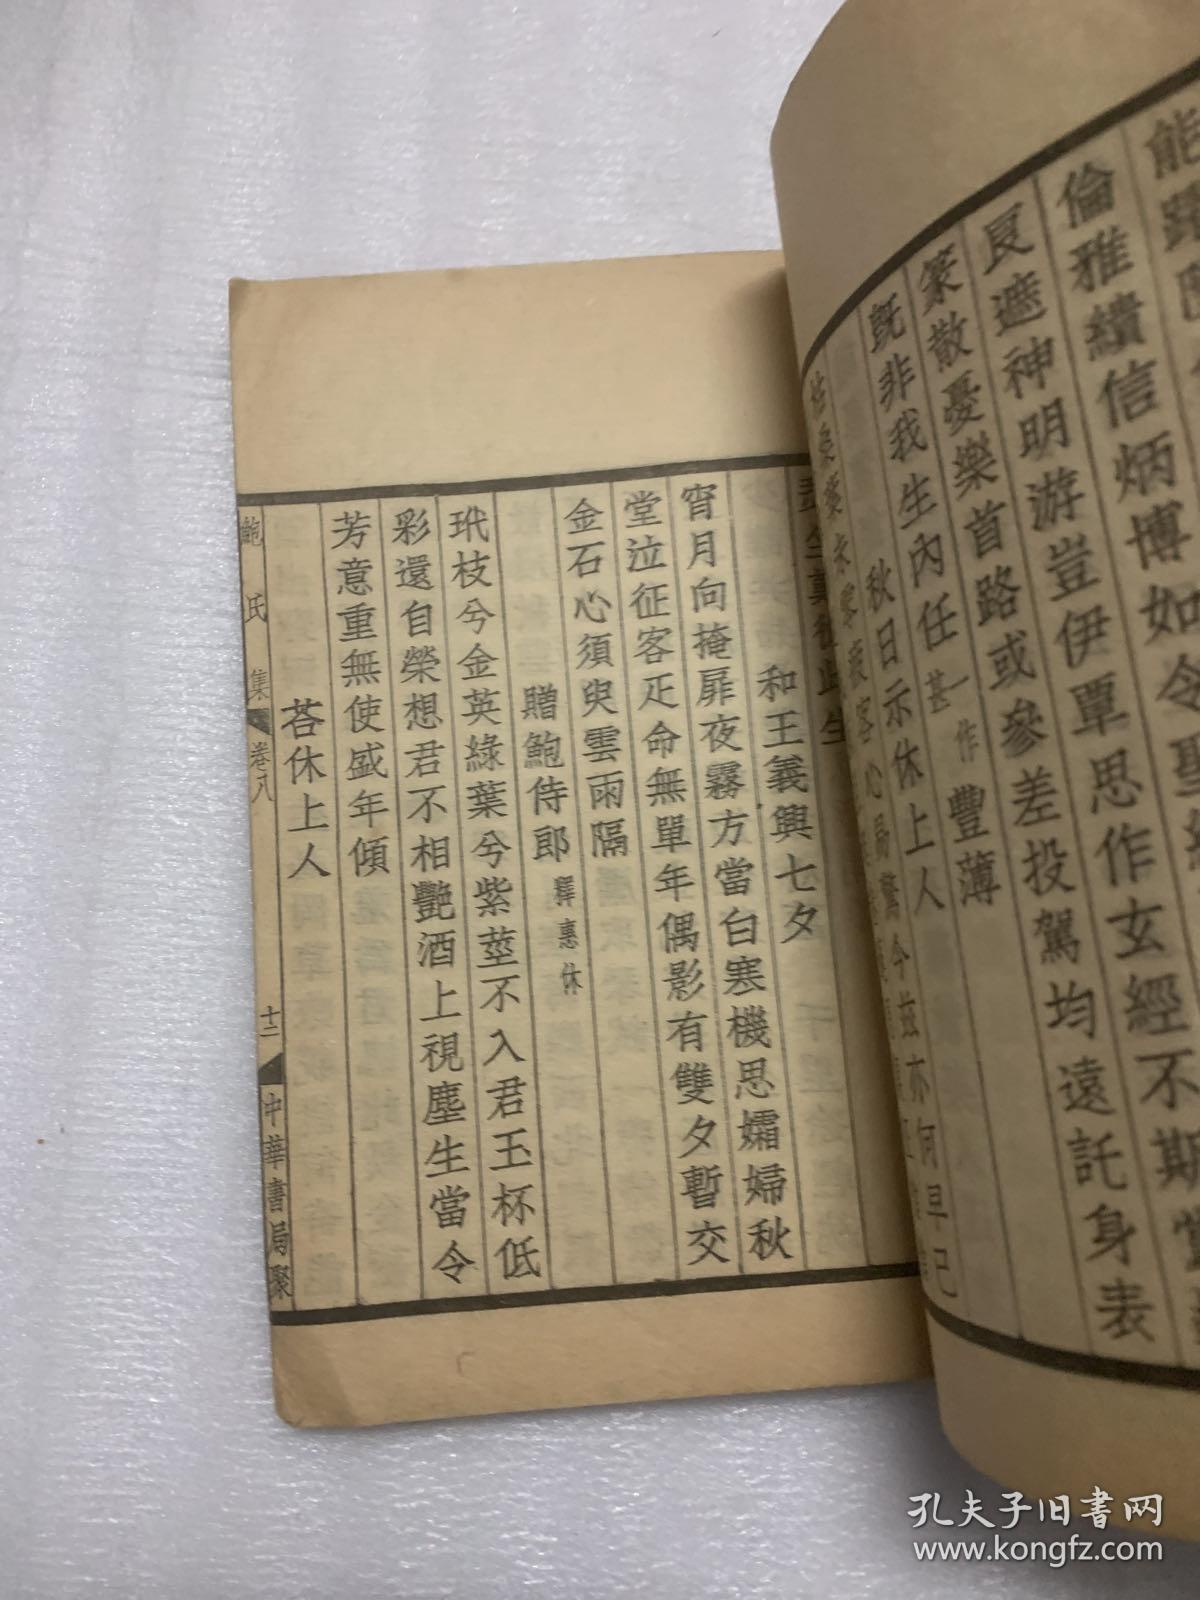 倫雅續信炳博如令聖
良遮神明游豈伊覃思作玄經不斯
篆散憂樂首路或參差投駕均遠託身表
既非我生內任一作甚豐薄
秋日示休上人
今茲亦何早已
和王義興七夕
宵月向掩扉夜霧方當白寒機思孀婦秋
堂泣征客疋命無單年偶影有雙夕暫交
金石心須臾雲雨隔
贈鮑侍郎釋惠休
玳枝兮金英綠葉兮紫莖不入君玉杯低
彩還自榮想君不相艷酒上視塵生當令
芳意重無使盛年傾
荅休上人
鮑氏集 卷八 十二 中華書局聚
孔夫子旧书网
www.kongfz.com